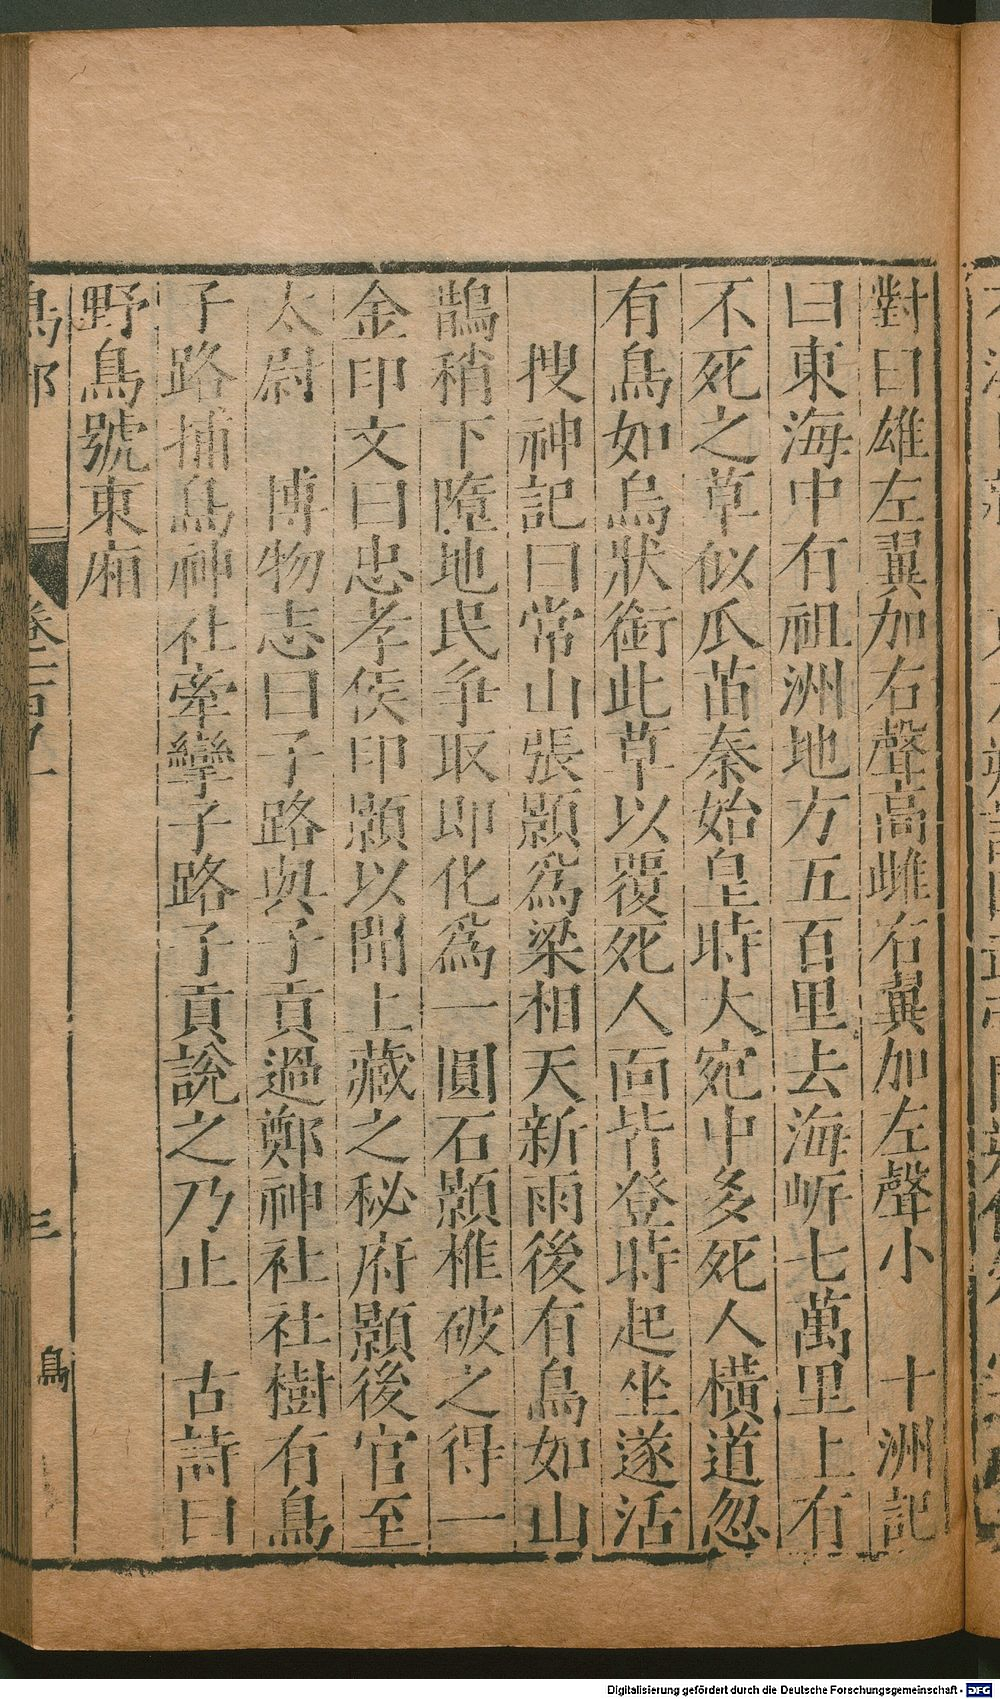 對曰雄左翼加右聲高雌右翼加左聲小　十洲記
曰東海中有祖洲地方五百里去海岓七萬里上有
不死之草似瓜苗秦始皇時大宛中多死人橫道忽
有鳥如烏狀銜此草以覆死人面皆登時起坐遂活
搜神記曰常山張顥爲梁相天新雨後有鳥如山
鵲稍下墮地民爭取即化爲一圓石顥椎破之得一
金印文曰忠孝侯印顥以聞上藏之秘府顥後官至
太尉　博物志曰子路與子貢過鄭神社社樹有鳥
子路捕鳥神社牽攣子路子貢說之乃止　古詩曰
野鳥號東廂
鳥部　卷二百九十一　三　鳥
Digitalisierung gefördert durch die Deutsche Forschungsgemeinschaft - DFG